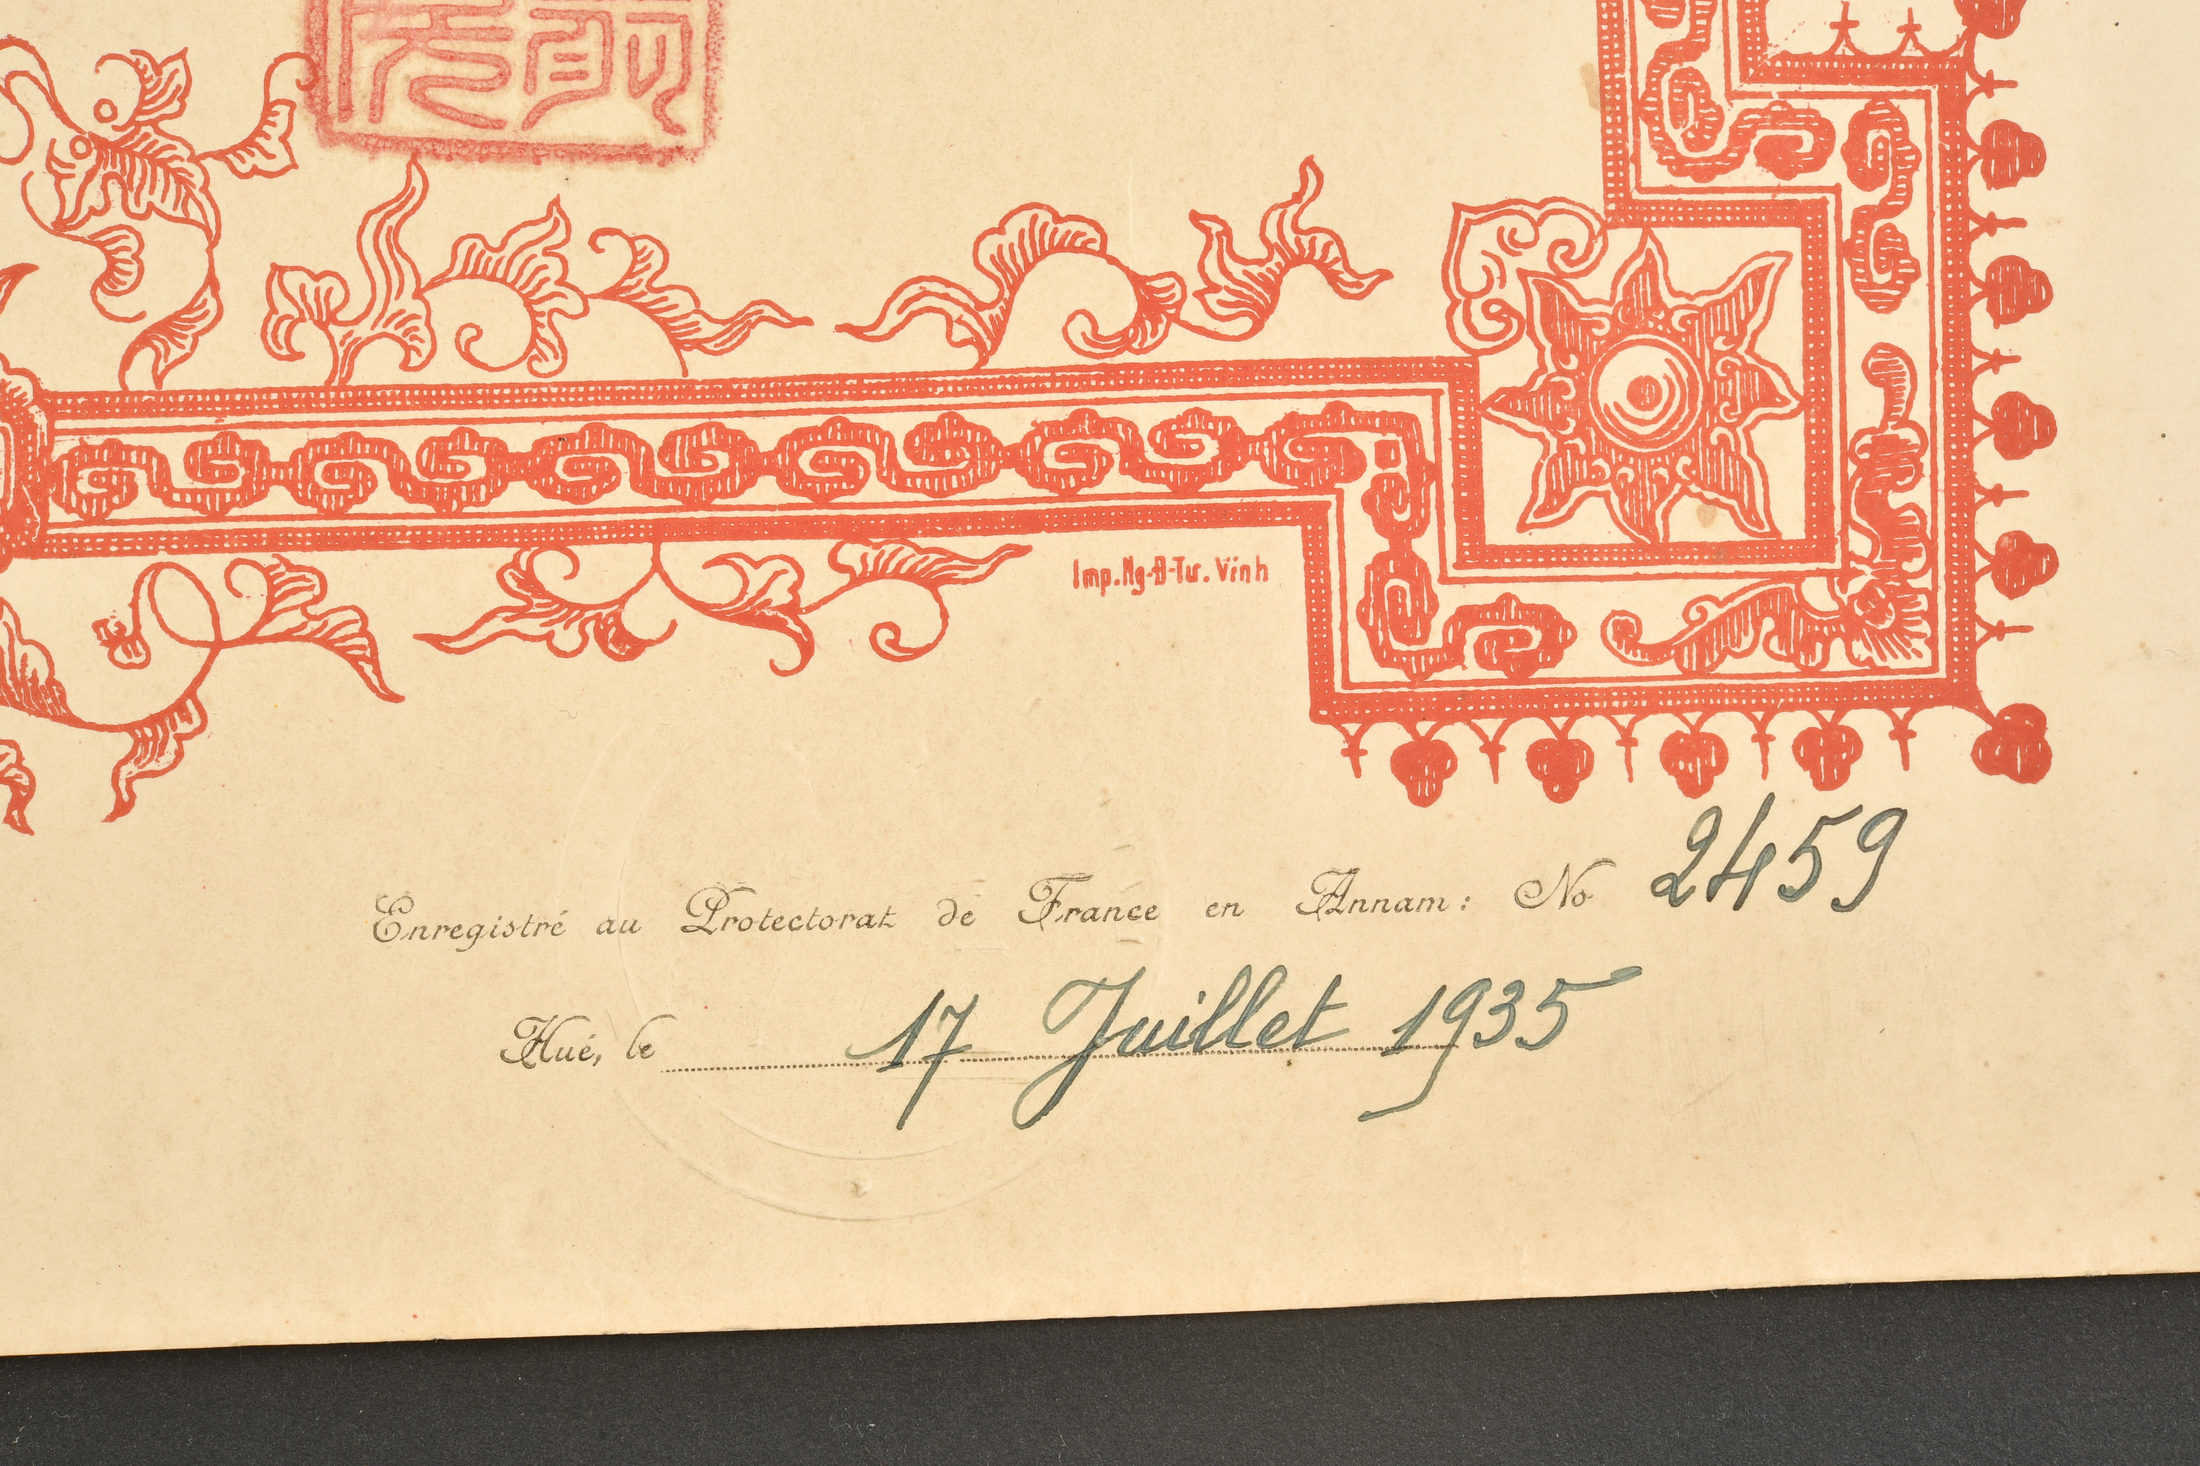 Imp. Ng-Đ-Tư. Vinh
Enregistré au Protectorat de France en Annam : No 2459
Hué, le 17 Juillet 1935